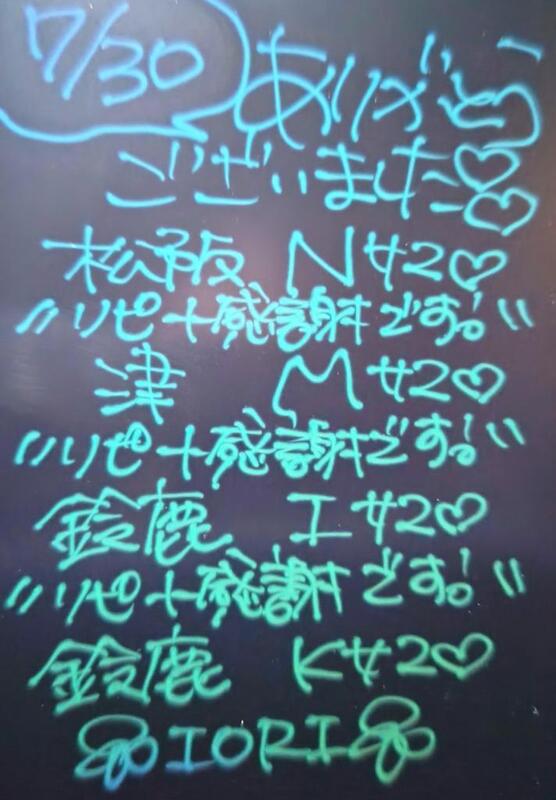 7/30 ありがとう
ございました♡♡
松阪 N女20♡
"リピ十感謝です!"
津 M女20♡
"リピ十感謝です!"
鈴鹿 I女20♡
"リピ十感謝です!"
鈴鹿 K女20♡
IORI